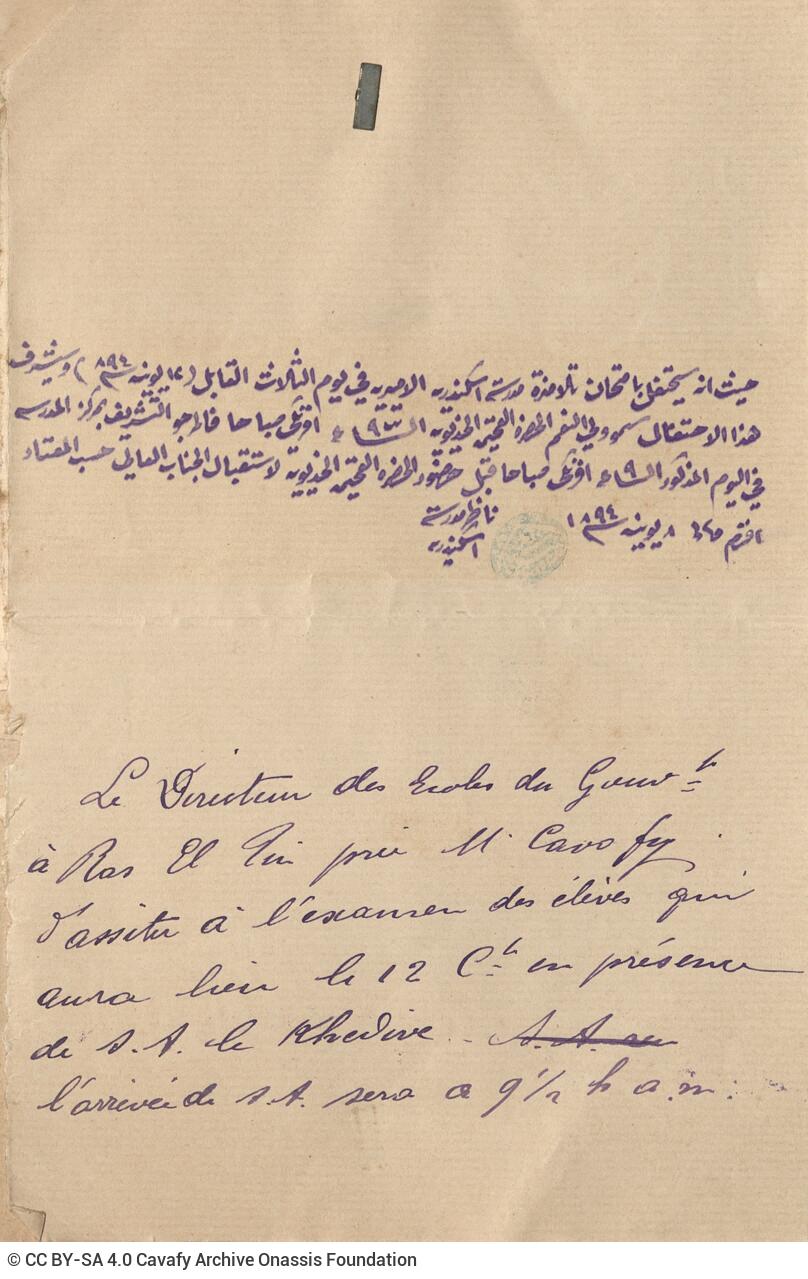 حيث انه سيحتفل بامتحان تلامذة مدرسة اسكندريه الاميريه في يوم الثلاث القابل (١٢ يونيه سنة ٨٩٤) وسيشرف
هذا الاحتفال سمو ولي النعم الحضرة الفخيمة الخديوية الساعة ٩ افرنكى صباحا فارجو التشريف بمركز المدرسه
في اليوم المذكور الساعة ٩ افرنكى صباحا قبل حضور الحضرة الفخيمة الخديوية لاستقبال الجناب العالي حسب المعتاد
افندم ٨ يونيه سنة ١٨٩٤
ناظر مدرسة
اسكندريه
Le Directeur des Ecoles du Gouv.t
à Ras El Tin prie Mr Cavafy
d'assiter à l'examen des élèves qui
aura lieu le 12 Ct en présence
de S.A. le Khedive. S.A. se
l'arrivée de S.A. sera a 9 1/2 h a.m.
© CC BY-SA 4.0 Cavafy Archive Onassis Foundation